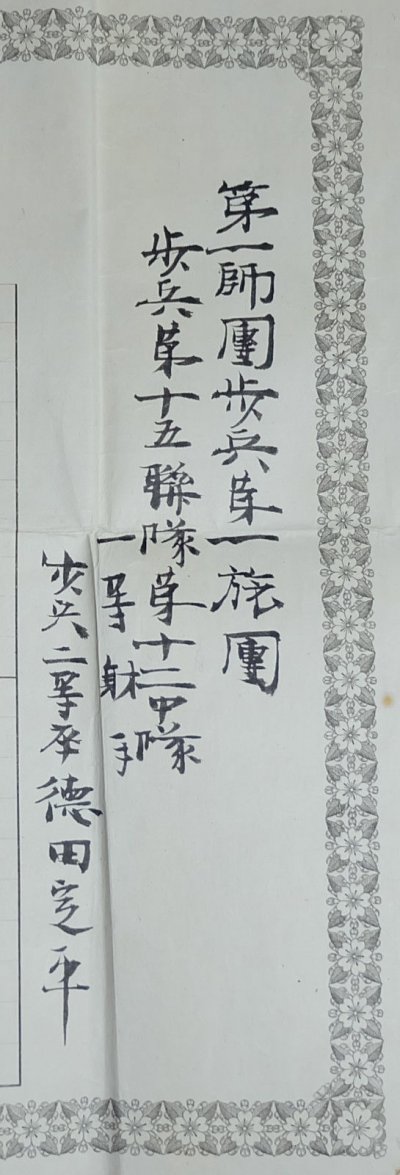 第一師團歩兵第一旅團
歩兵第十五聯隊第十二中隊
一等射手
歩兵二等卒德田定平